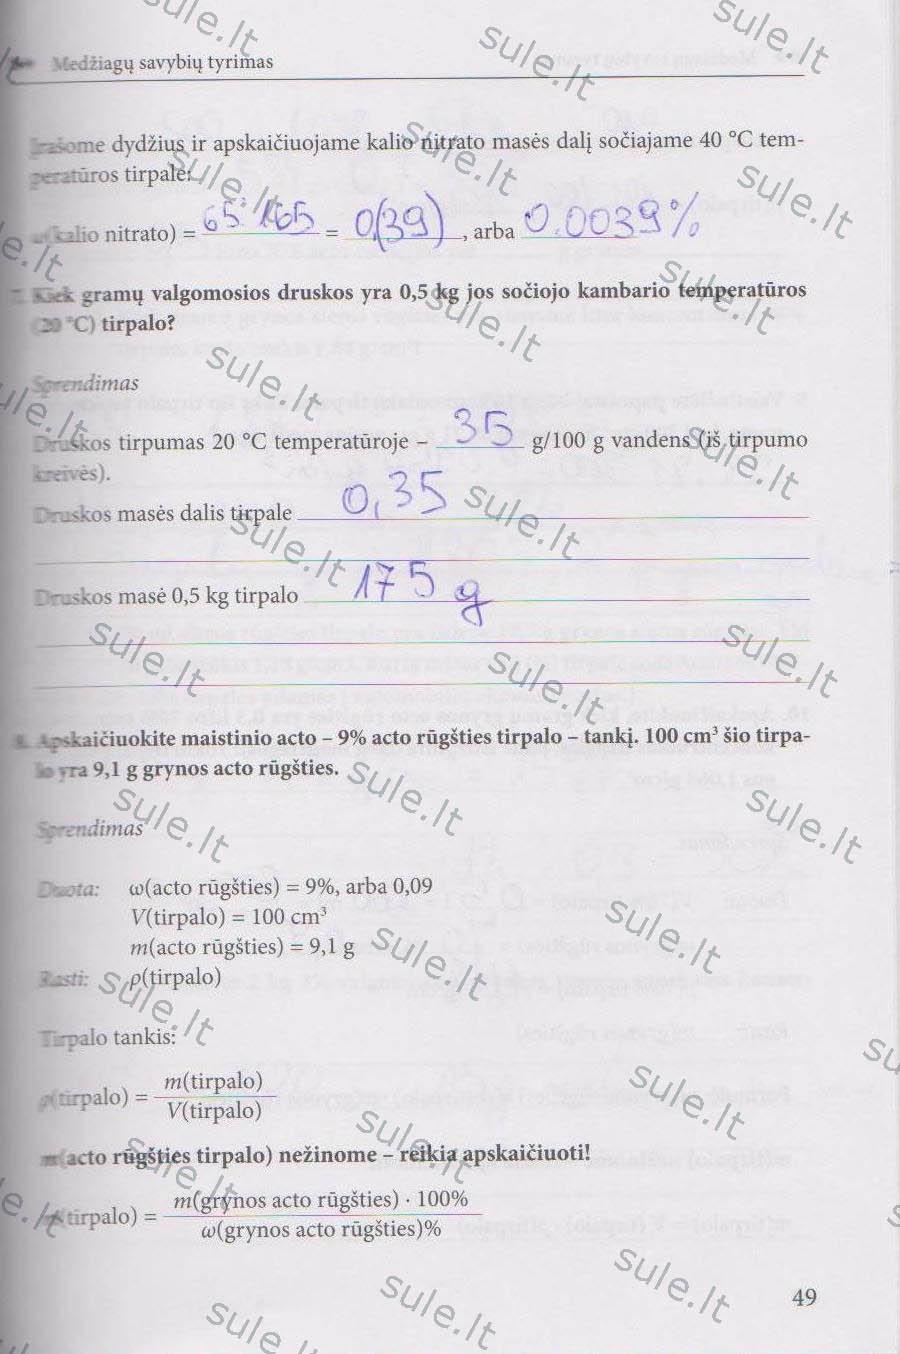 Medžiagų savybių tyrimas
Įrašome dydžius ir apskaičiuojame kalio nitrato masės dalį sočiajame 40 °C tem-
peratūros tirpale:
ω(kalio nitrato) = 65:165 = 0,(39), arba 0.0039%
7. Kiek gramų valgomosios druskos yra 0,5 kg jos sočiojo kambario temperatūros
(20 °C) tirpalo?
Sprendimas
Druskos tirpumas 20 °C temperatūroje – 35 g/100 g vandens (iš tirpumo
kreivės).
Druskos masės dalis tirpale 0,35
Druskos masė 0,5 kg tirpalo 175 g
8. Apskaičiuokite maistinio acto – 9% acto rūgšties tirpalo – tankį. 100 cm³ šio tirpa-
lo yra 9,1 g grynos acto rūgšties.
Sprendimas
Duota: ω(acto rūgšties) = 9%, arba 0,09
V(tirpalo) = 100 cm³
m(acto rūgšties) = 9,1 g
Rasti: ρ(tirpalo)
Tirpalo tankis:
ρ(tirpalo) = m(tirpalo)
V(tirpalo)
m(acto rūgšties tirpalo) nežinome – reikia apskaičiuoti!
m(tirpalo) = m(grynos acto rūgšties) · 100%
ω(grynos acto rūgšties)%
49
sule.lt